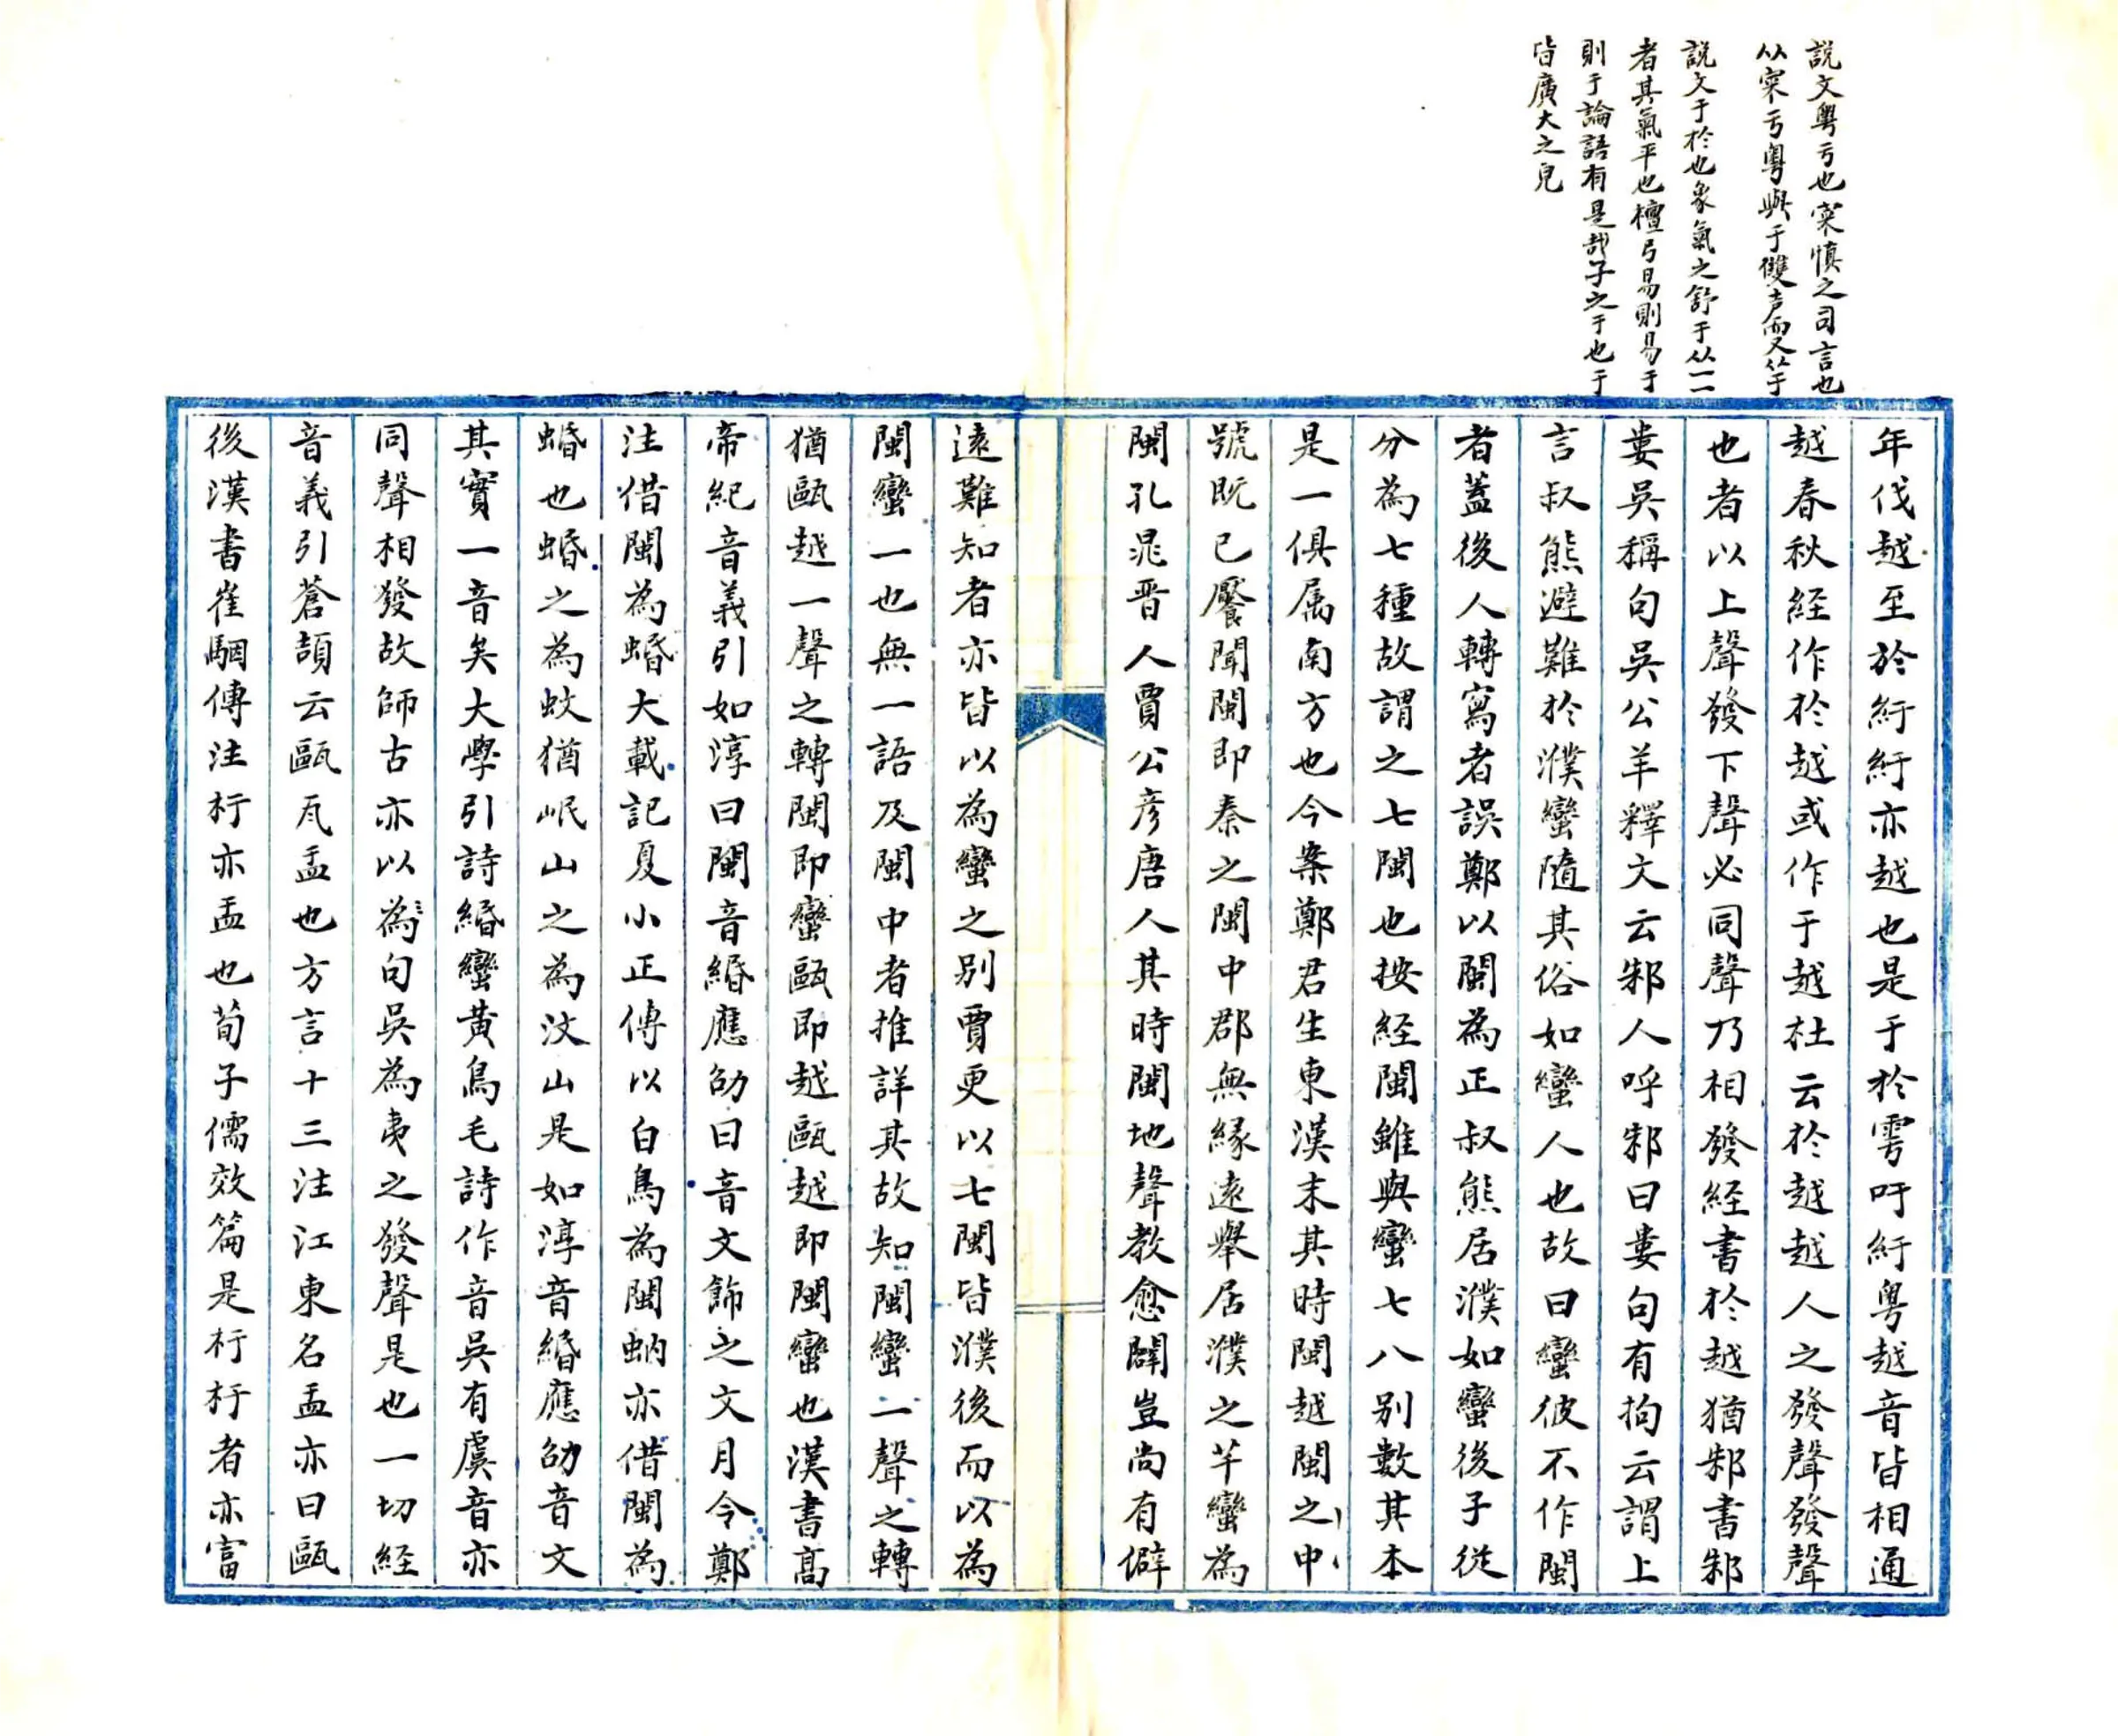 説文粵亏也寀慎之司言也
从寀亏粵與于雙声而又从于
説文于於也象氣之舒于从一一
者其氣平也檀弓易則易于
則于論語有是哉子之于也于
皆廣大之皃
年伐越至於紆紆亦越也是于於雩吁紆粤越音皆相通
越春秋経作於越或作于越杜云於越越人之發聲發聲
也者以上聲發下聲必同聲乃相發経書於越猶邾書邾
婁吳稱句吳公羊釋文云邾人呼邾曰婁句有拘云謂上
言叔熊避難於濮蠻隨其俗如蠻人也故曰蠻彼不作閩
者蓋後人轉寫者誤鄭以閩為正叔熊居濮如蠻後子從
分為七種故謂之七閩也按経閩雖與蠻七八别數其本
是一俱属南方也今案鄭君生東漢末其時閩越閩之中
號既已饜聞閩即秦之閩中郡無緣遠舉居濮之芊蠻為
閩孔晁晋人賈公彦唐人其時閩地聲教愈闢豈尚有僻
遠難知者亦皆以為蠻之别賈更以七閩皆濮後而以為
閩蠻一也無一語及閩中者推詳其故知閩蠻一聲之轉
猶甌越一聲之轉閩即蠻甌即越甌越即閩蠻也漢書髙
帝紀音義引如淳曰閩音緡應劭曰音文飾之文月令鄭
注借閩為蟁大載記夏小正傳以白鳥為閩蚋亦借閩為
蟁也蟁之為蚊猶岷山之為汶山是如淳音緡應劭音文
其實一音矣大學引詩緡蠻黄鳥毛詩作音吳有虞音亦
同聲相發故師古亦以為句吳為夷之發聲是也一切経
音義引蒼頡云甌瓦盂也方言十三注江東名盂亦曰甌
後漢書崔駰傳注杅亦盂也荀子儒效篇是杅杅者亦富